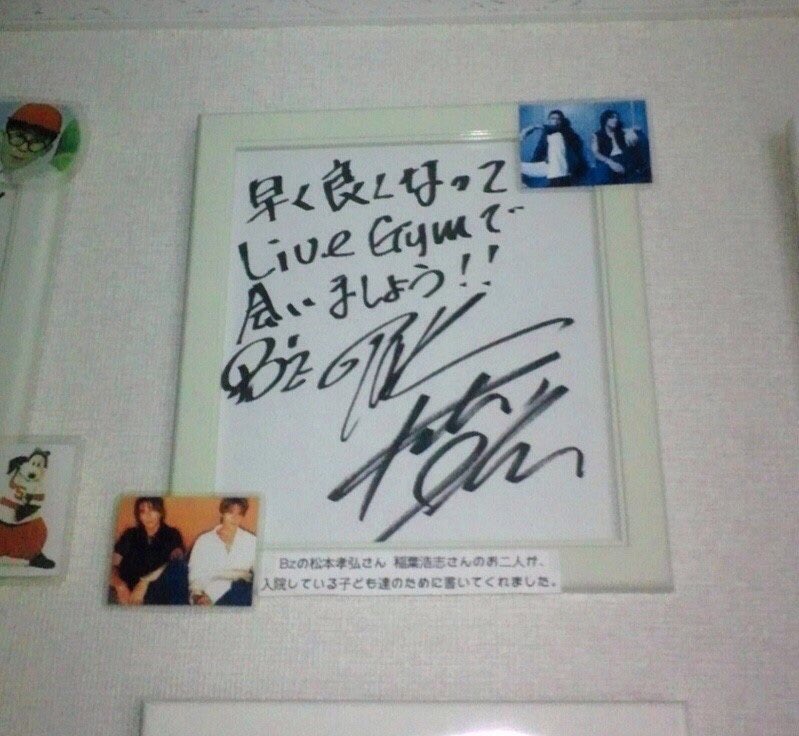 早く良くなって
Live Gymで
会いましょう!!
B'z
Bzの松本孝弘さん 稲葉浩志さんのお二人が、
入院している子ども達のために書いてくれました。